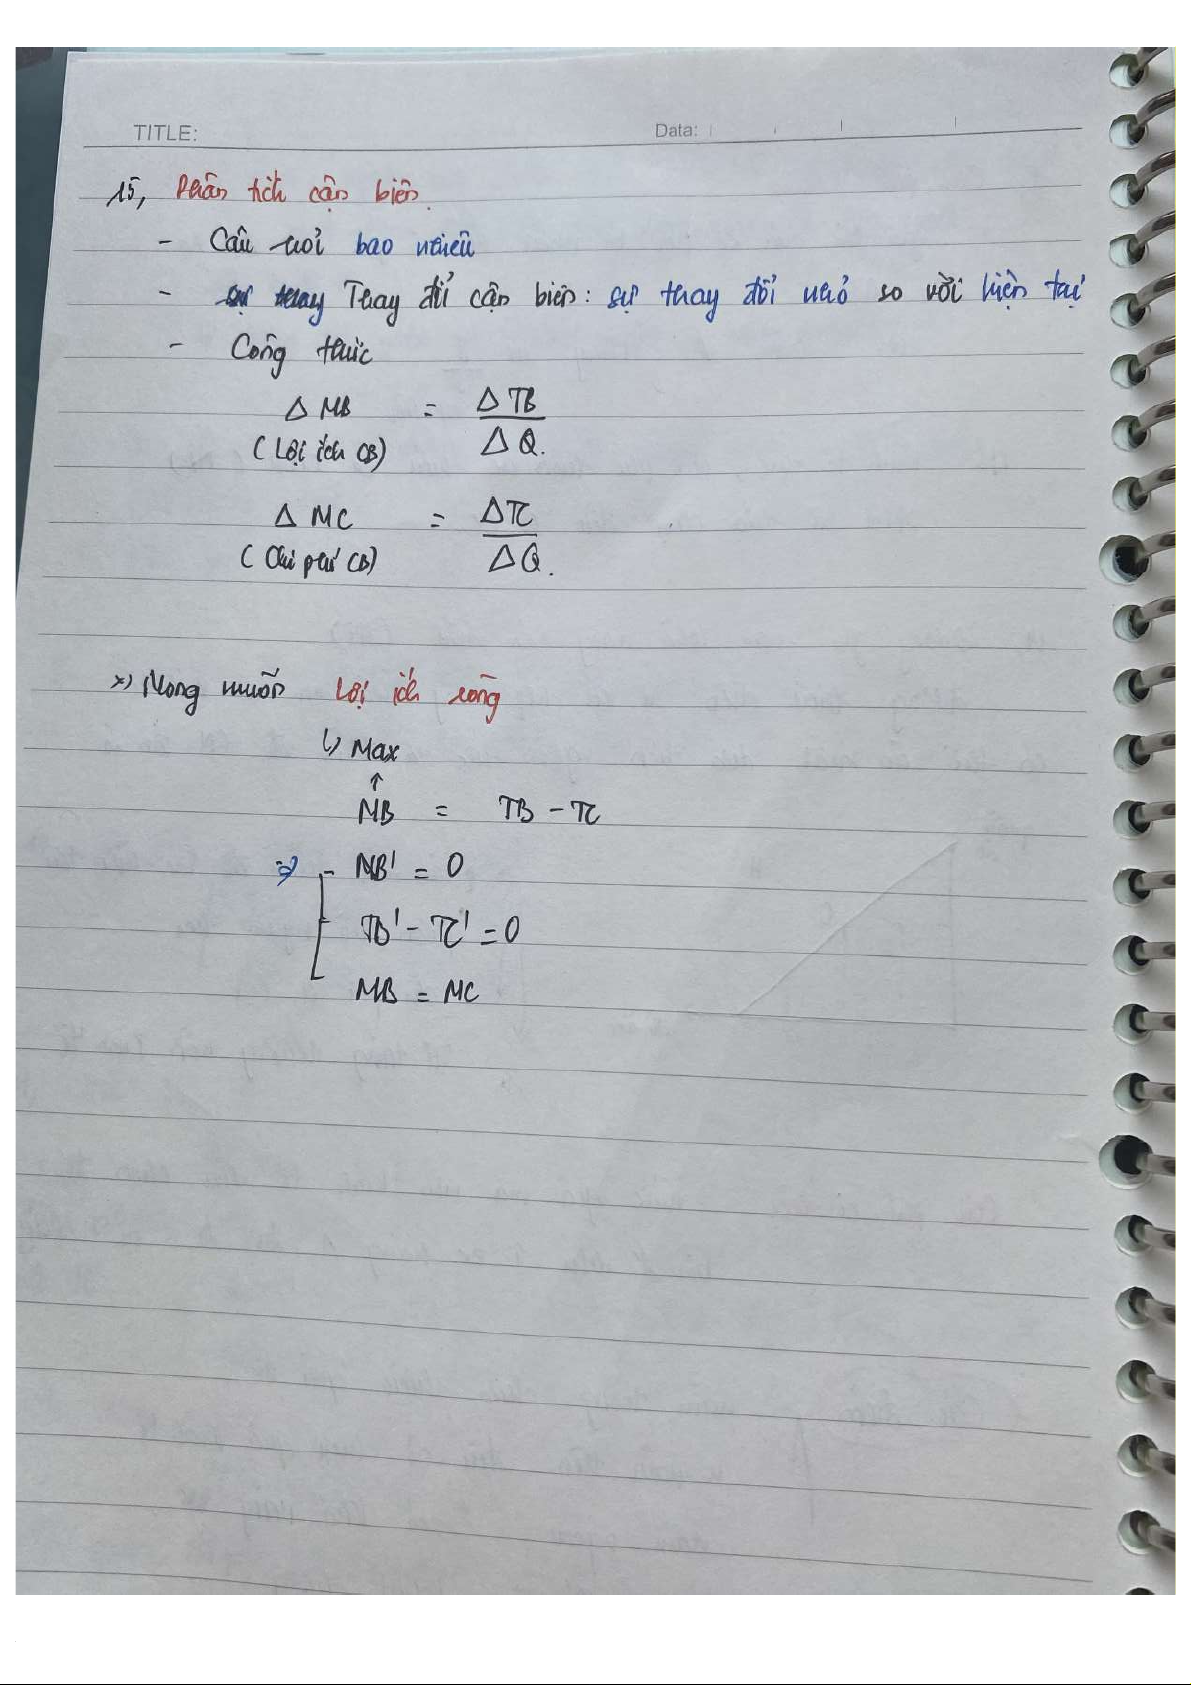 TITLE:
Data:
15, Phân tích cận biên.
- Câu hỏi bao nhiêu
- sự thay Thay đổi cận biên: sự thay đổi nhỏ so với hiện tại
- Công thức
Δ MB = ΔTB / ΔQ.
(Lợi ích CB)
Δ MC = ΔTC / ΔQ.
(Chi phí CB)
*) Mong muốn Lợi ích ròng
↳ Max
↑
NB = TB - TC
=> - NB' = 0
TB' - TC' = 0
MB = MC